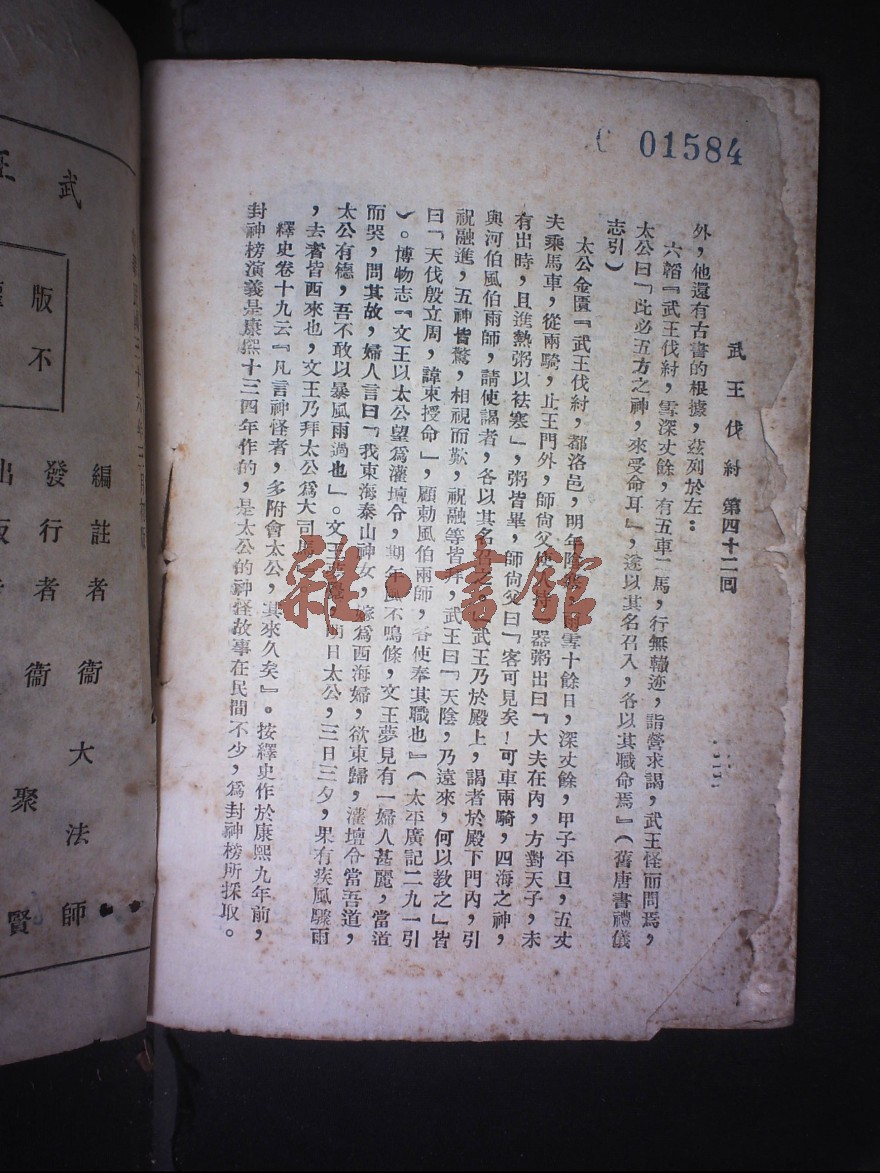 01584
武王伐紂 第四十二回
外，他還有古書的根據，茲列於左：
六韜『武王伐紂，雪深丈餘，有五車二馬，行無轍迹，詣營求謁，武王怪而問焉，
太公曰「此必五方之神，來受命耳」，遂以其名召入，各以其職命焉』（舊唐書禮儀
志引）
太公金匱『武王伐紂，都洛邑，明年陰寒，雨雪十餘日，深丈餘，甲子平旦，五丈
夫乘馬車，從兩騎，止王門外，師尚父使人持一器粥出曰「大夫在內，方對天子，未
有出時，且進熱粥以祛寒」，粥皆畢，師尚父曰「客可見矣！可車兩騎，四海之神，
與河伯風伯雨師，請使謁者，各以其名召之，武王乃於殿上，謁者於殿下門內，引
祝融進，五神皆驚，相視而歎，祝融等皆拜，武王曰「天陰，乃遠來，何以教之」皆
曰「天伐殷立周，謹來授命」，顧勅風伯雨師，各使奉其職也』（太平廣記二九一引
）。博物志『文王以太公望為灌壇令，期年風不鳴條，文王夢見有一婦人甚麗，當道
而哭，問其故，婦人言曰「我東海泰山神女，嫁為西海婦，欲東歸，灌壇令當吾道，
太公有德，吾不敢以暴風雨過也」。文王夢覺，明日太公，三日三夕，果有疾風驟雨
，去者皆西來也，文王乃拜太公為大司馬
釋史卷十九云『凡言神怪者，多附會太公，其來久矣』。按繹史作於康熙九年前，
封神榜演義是康熙十三四年作的，是太公的神怪故事在民間不少，為封神榜所採取。
雜·書館
武王
版不
編註者 衞大法師
發行者 衞聚賢
出版者